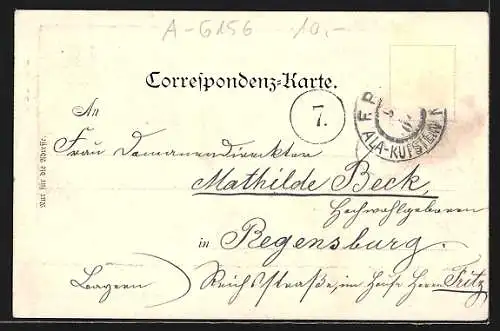 A-G156 10.-
Correspondenz-Karte.
7.
F P
ALA-KUFSTEIN
An
Frau Domänendirektor
Mathilde Beck,
Hochwohlgeboren
in Regensburg.
Bayern) Reichsstraße, im Hause Herrn Fritz
Nur für die Adresse.